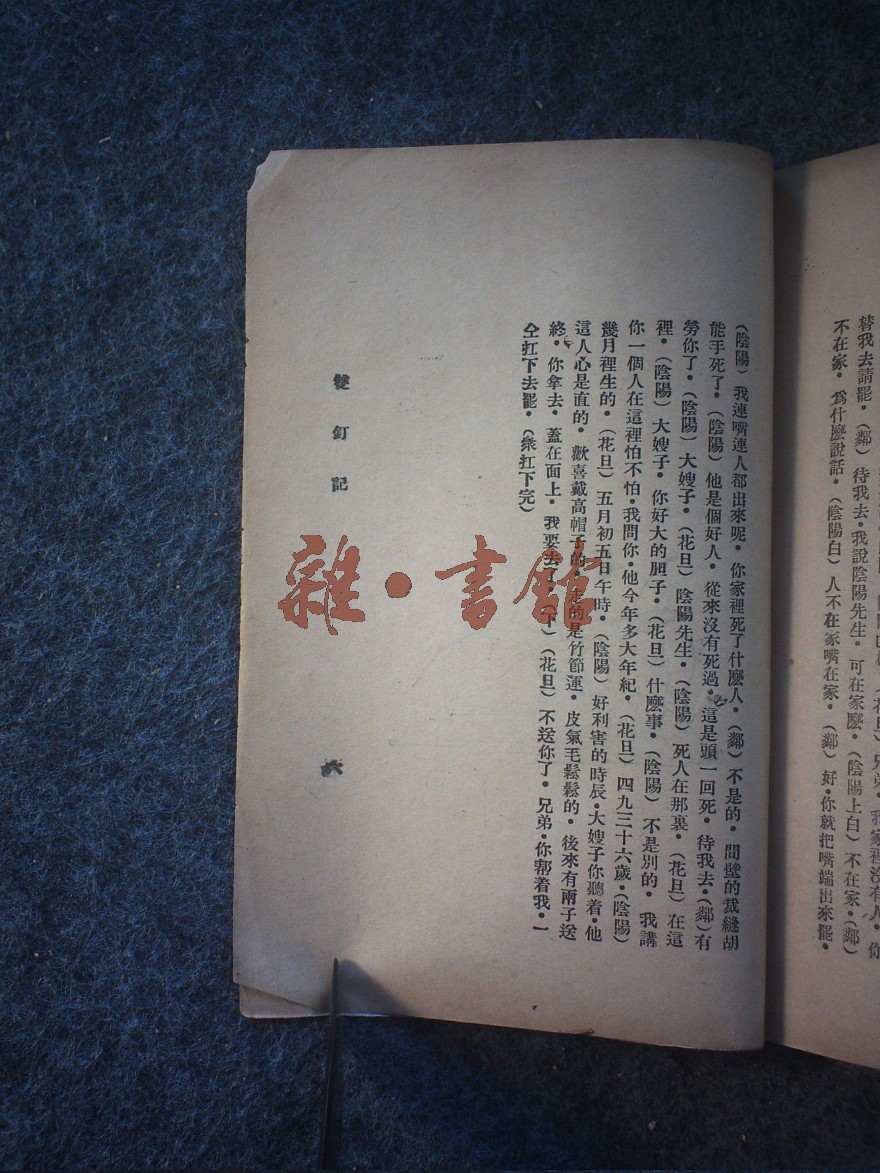 替我去請罷•(鄰)待我去•我說陰陽先生•可在家麽•(陰陽上白)不在家•(鄰)
不在家•爲什麽說話•(陰陽白)人不在家嘴在家•(鄰)好•你就把嘴端出來罷•
(陰陽)我連嘴連人都出來呢•你家裡死了什麽人•(鄰)不是的•間壁的裁縫胡
能手死了•(陰陽)他是個好人•從來沒有死過•這是頭一回死•待我去•(鄰)有
勞你了•(陰陽)大嫂子•(花旦)陰陽先生•(陰陽)死人在那裏•(花旦)在這
裡•(陰陽)大嫂子•你好大的胆子•(花旦)什麽事•(陰陽)不是別的•我講
你一個人在這裡怕不怕•我問你•他今年多大年紀•(花旦)四九三十六歲•(陰陽)
幾月裡生的•(花旦)五月初五日午時•(陰陽)好利害的時辰•大嫂子你聽着•他
這人心是直的•歡喜戴高帽子的•走的是竹節運•皮氣毛鬆鬆的•後來有兩子送
終•你拿去•蓋在面上•我要去了•(下)(花旦)不送你了•兄弟•你帮着我•一
仝扛下去罷•(衆扛下完)
雙釘記
六
雜•書館